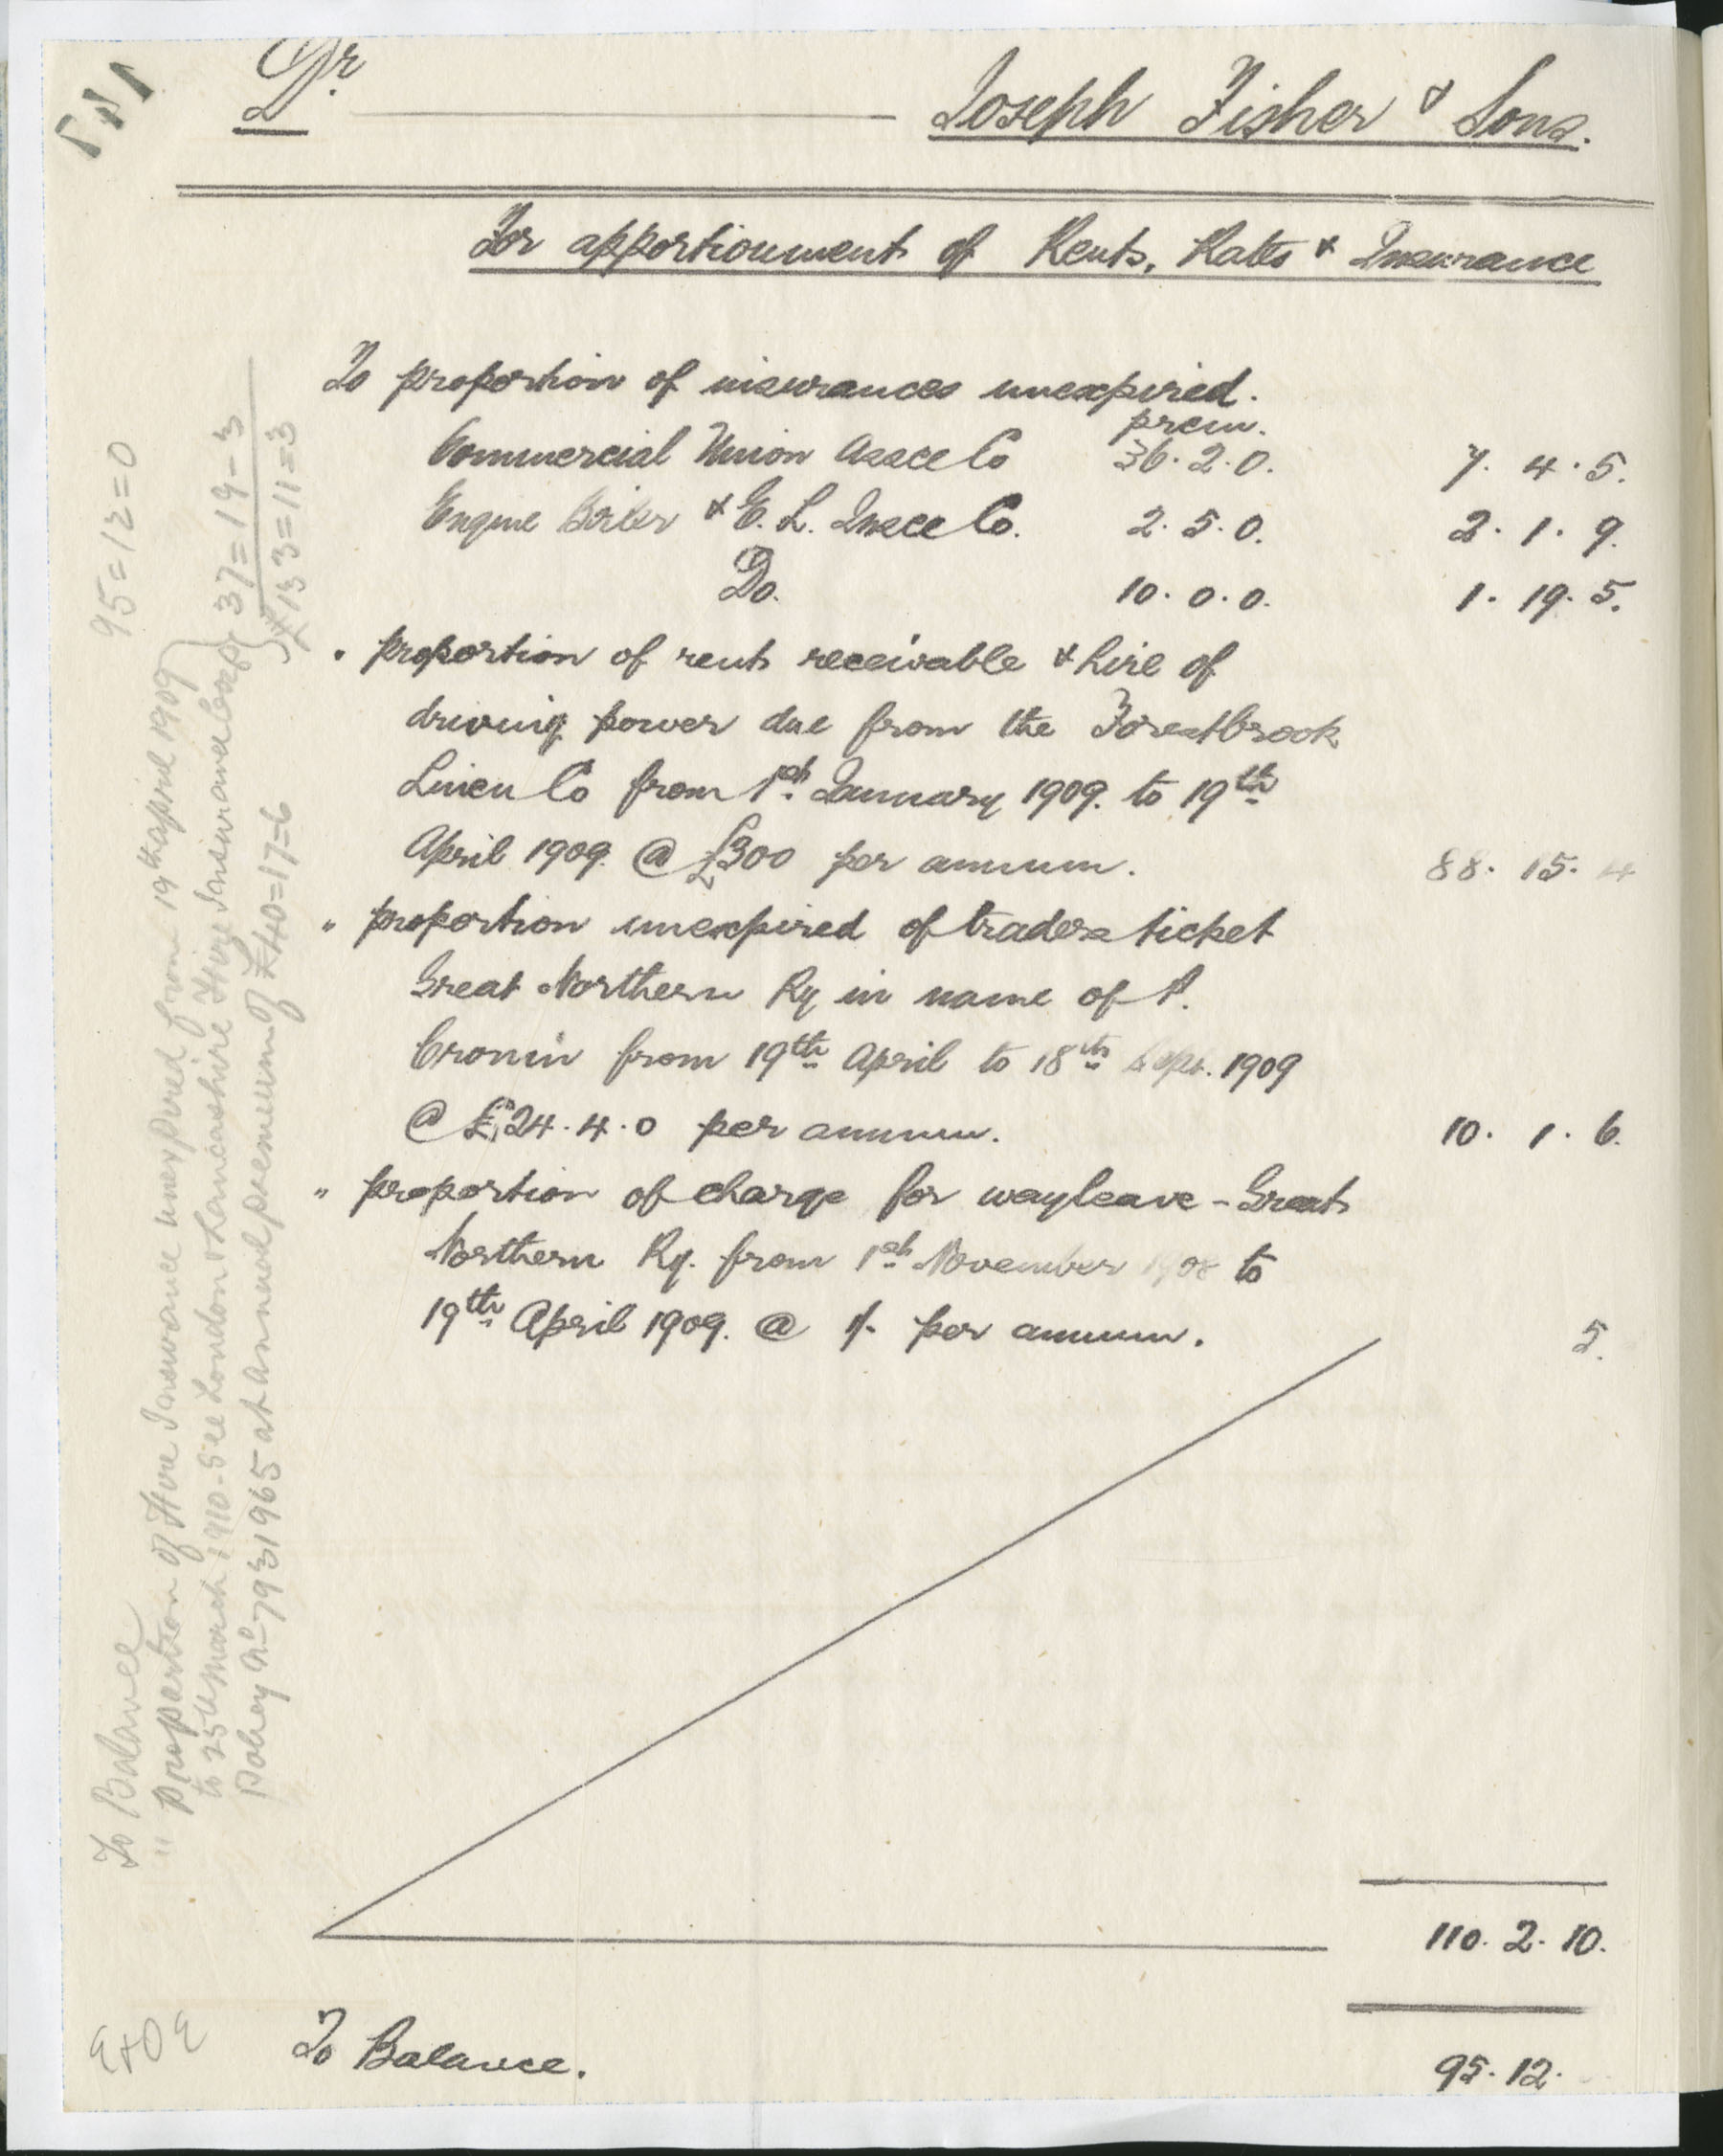 Dr. Joseph Fisher & Sons.
For apportionment of Rents, Rates & Insurance
To proportion of insurances unexpired.
prem.
Commercial Union Assce Co 36. 2. 0. 7. 4. 5.
Engine Boiler & E. L. Insce Co. 2. 5. 0. 2. 1. 9.
Do. 10. 0. 0. 1. 19. 5.
" proportion of rent receivable & hire of
driving power due from the Forestbrook
Linen Co from 1st January 1909. to 19th
April 1909. @ £300 per annum. 88. 15. 4
" proportion unexpired of traders ticket
Great Northern Ry in name of P.
Cronin from 19th April to 18th Sept. 1909
@ £24. 4. 0 per annum. 10. 1. 6.
" proportion of charge for wayleave - Great
Northern Ry. from 1st November 1908 to
19th April 1909. @ 1/- per annum. 5.
110. 2. 10.
To Balance. 95. 12.
E&OE
To Balance 95=12=0
" Proportion of Fire Insurance unexpired from 19th april 1909
to 25th March 1910. See London & Lancashire Fire Insurance Coys 37=19-3
Policy No 7931965 at annual premium of £40=17=6 £133=11=3